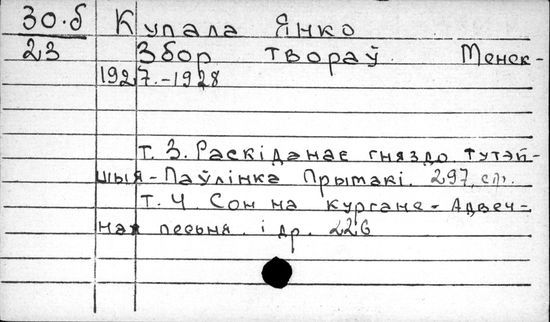 30.б Купала Янко
23 Збор твораў. Менск-
1927.-1928
т. 3. Раскіданае гняздо. тутэй-
шыя-Паўлінка Прымакі. 297. стр.
т. 4. Сон на кургане-Адвеч-
ная песьня. і др. 226